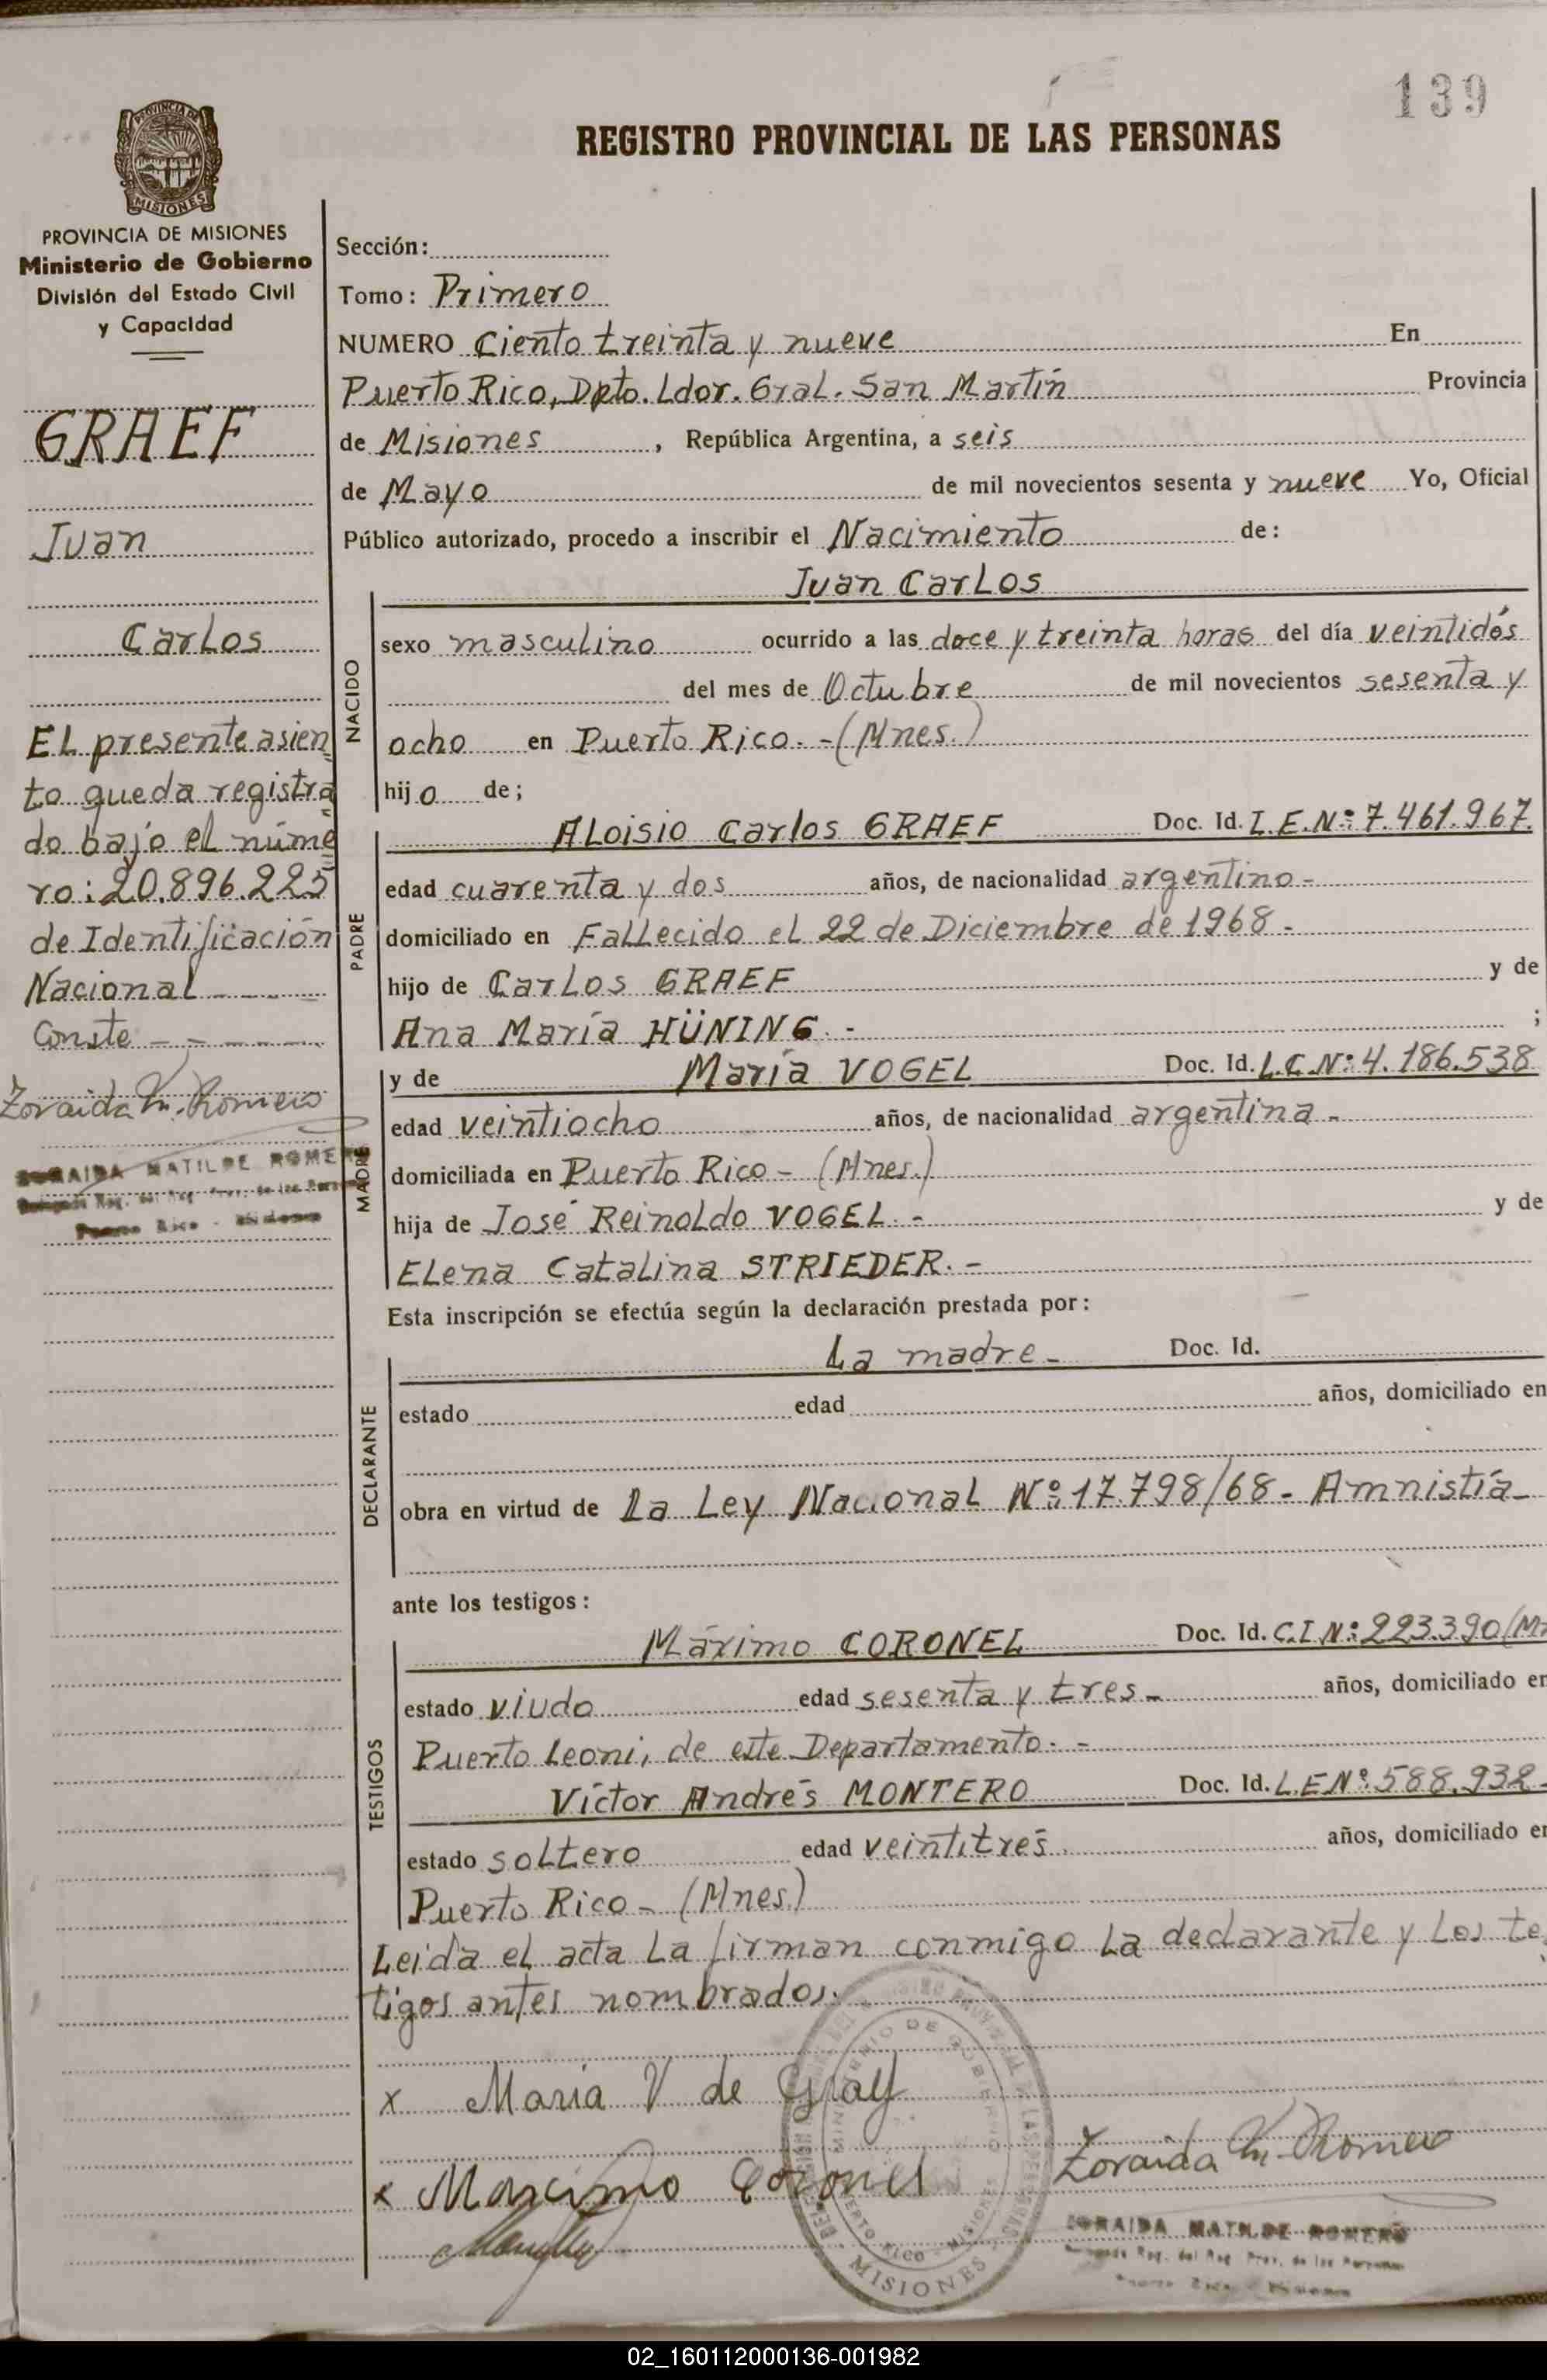 139
REGISTRO PROVINCIAL DE LAS PERSONAS
PROVINCIA DE
MISIONES
PROVINCIA DE MISIONES
Ministerio de Gobierno
División del Estado Civil
y Capacidad
GRAEF
Juan
Carlos
EL presente asien
to queda registra
do bajo el núme
ro: 20.896.225
de Identificación
Nacional - - - -
Conste - - - - -
Zoraida M. Romero
ZORAIDA MATILDE ROMERO
Delegada Reg. del Reg. Prov. de las Personas
Puerto Rico - Misiones
Sección:
Tomo: Primero
NUMERO Ciento treinta y nueve En
Puerto Rico, Dpto. Ldor. Gral. San Martín Provincia
de Misiones , República Argentina, a seis
de Mayo de mil novecientos sesenta y nueve Yo, Oficial
Público autorizado, procedo a inscribir el Nacimiento de:
NACIDO
Juan Carlos
sexo masculino ocurrido a las doce y treinta horas del día veintidós
del mes de Octubre de mil novecientos sesenta y
ocho en Puerto Rico. - (Mnes.)
hijo de;
PADRE
Aloisio Carlos GRAEF Doc. Id. L.E.Nº: 7.461.967.
edad cuarenta y dos años, de nacionalidad argentino -
domiciliado en Fallecido el 22 de Diciembre de 1968 -
hijo de Carlos GRAEF y de
Ana María HÜNING. - ;
MADRE
y de María VOGEL Doc. Id. L.C.Nº: 4.186.538
edad veintiocho años, de nacionalidad argentina -
domiciliada en Puerto Rico - (Mnes.)
hija de José Reinoldo VOGEL. - y de
Elena Catalina STRIEDER. -
Esta inscripción se efectúa según la declaración prestada por:
DECLARANTE
La madre - Doc. Id.
estado edad años, domiciliado en
obra en virtud de La Ley Nacional Nº: 17.798/68 - Amnistía -
ante los testigos:
TESTIGOS
Máximo CORONEL Doc. Id. C.I.Nº: 223.390/M
estado viudo edad sesenta y tres - años, domiciliado en
Puerto Leoni, de este Departamento. -
Víctor Andrés MONTERO Doc. Id. L.E.Nº: 588.932 -
estado soltero edad veintitrés años, domiciliado en
Puerto Rico - (Mnes.)
Leida el acta la firman conmigo la declarante y los te
tigos antes nombrados.
x María V de Graef
x Marcimo Coronel
Zoraida M. Romero
MINISTERIO DE GOBIERNO
PUERTO RICO - MISIONES
MISIONES
ZORAIDA MATILDE ROMERO
Delegada Reg. del Reg. Prov. de las Personas
Puerto Rico - Misiones
02_160112000136-001982